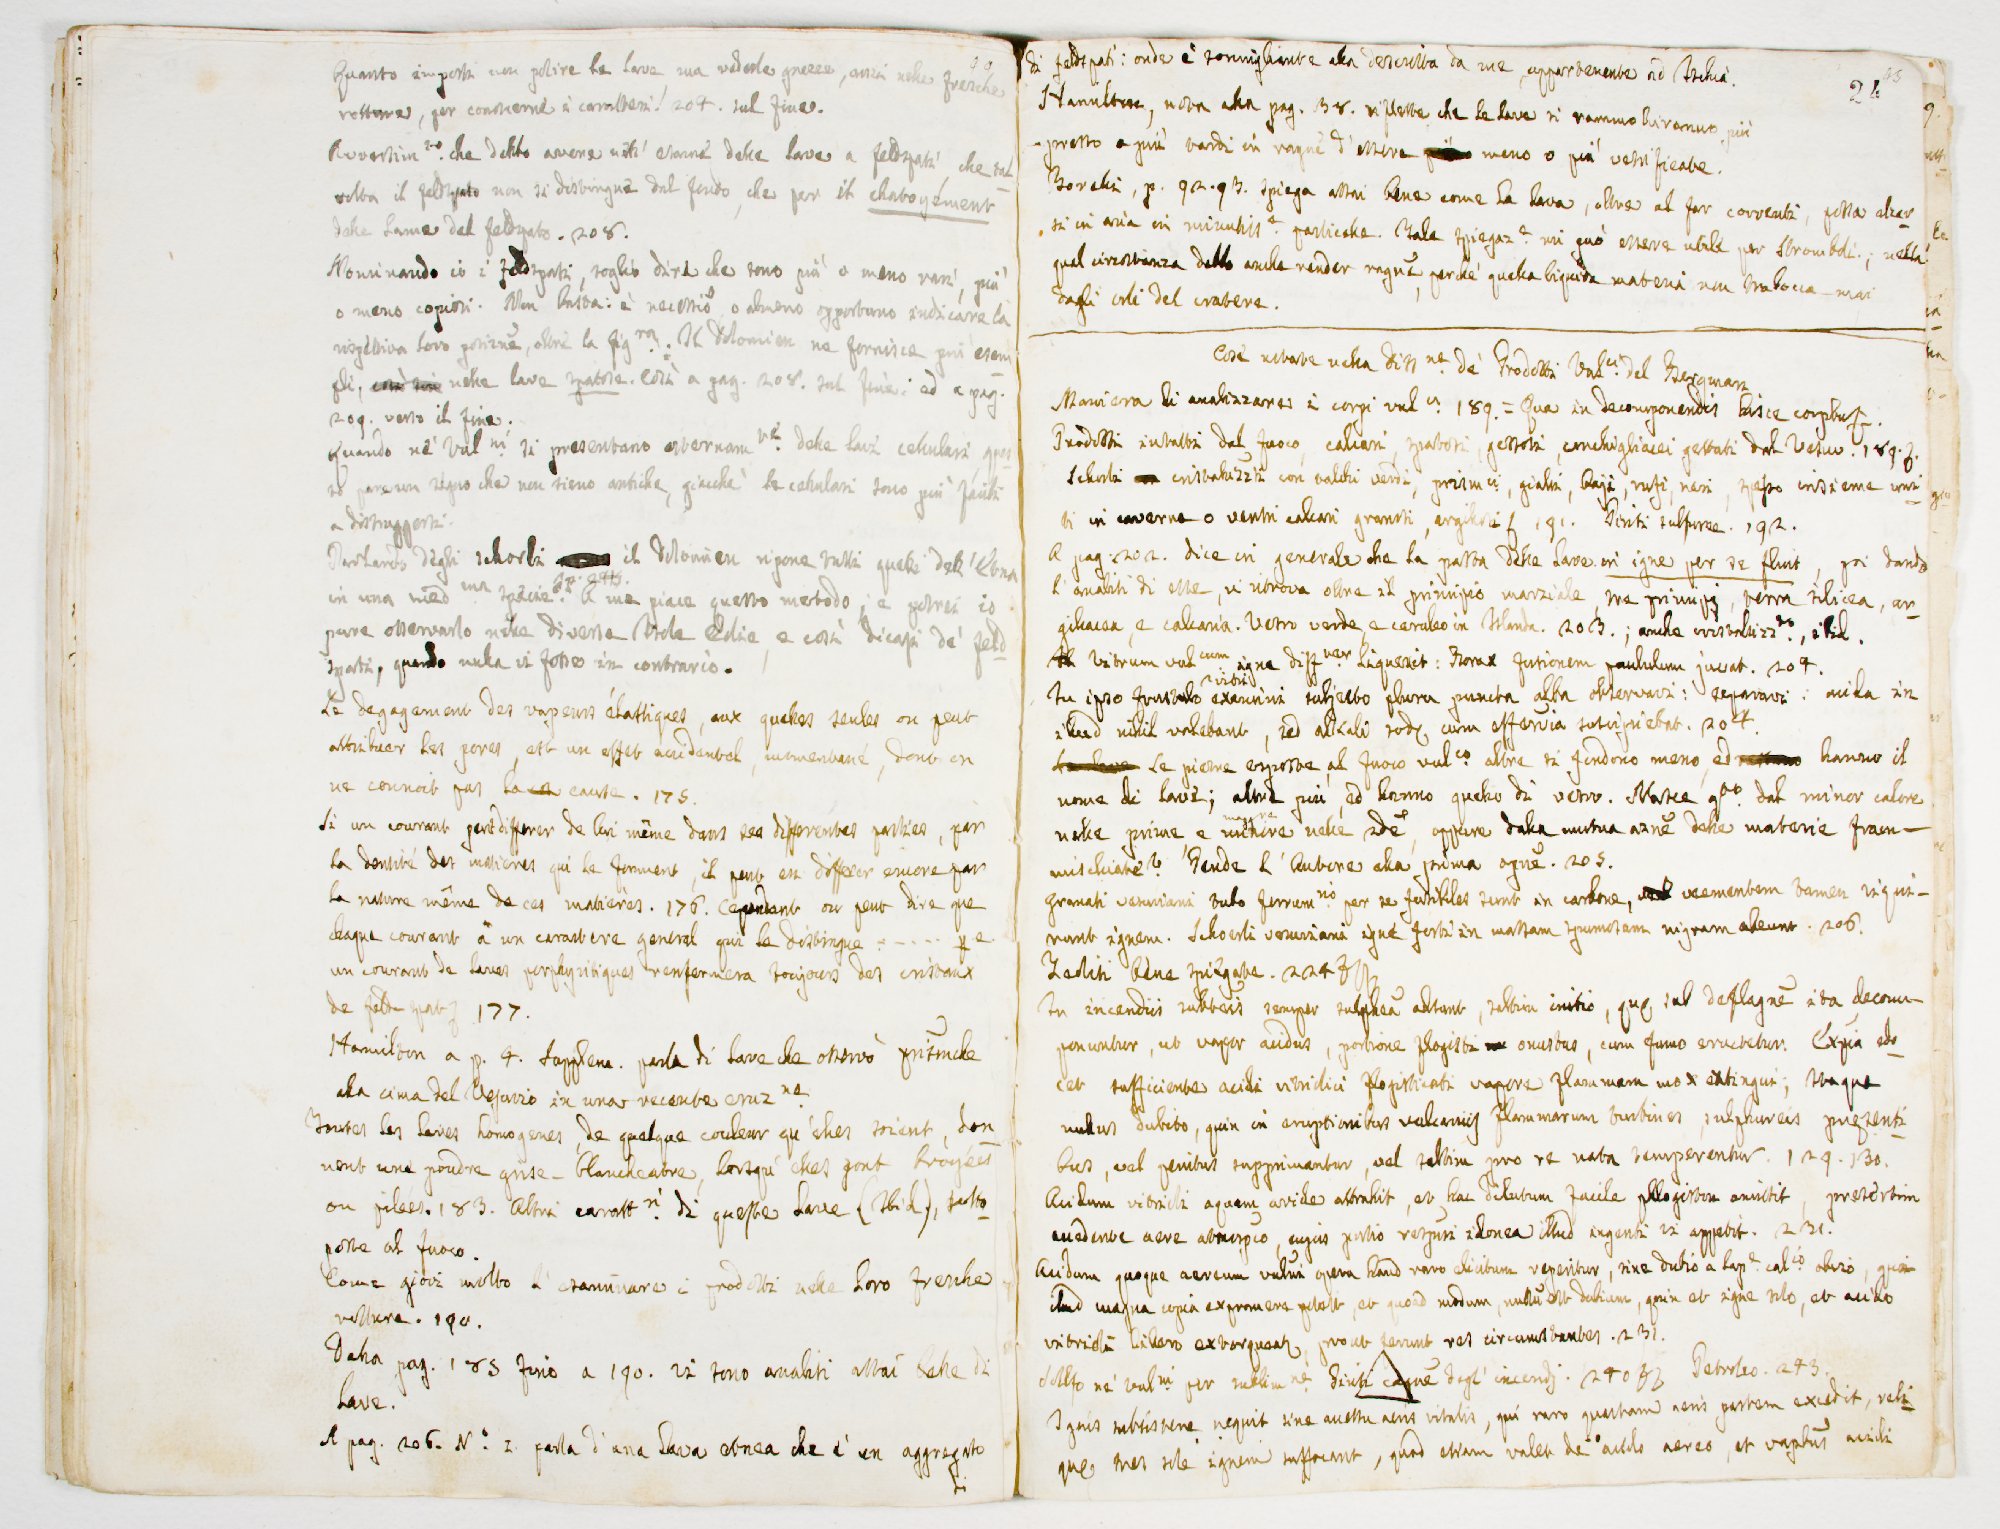 Quanto importi non polire le lave ma vederle grezze, anzi nelle fresche
rotture, per conoscerne i caratteri! 204. sul fine.
che detto avere noti esami delle lave a feldspati, che tal
volta il feldspato non si distingue dal fondo, che per il chatoyement
delle lame del feldspato. 208.
Nominando io i feldspati, soglio dire che sono più o meno rari, più
o meno copiosi. Non basta: è necessio, o almeno opportuno indicare la
rispettiva loro posizne, oltre la fig ra. Il Dolomieu ne fornisce più esem
pli, nelle lave spatose. Così a pag. 208. sul fine: ed a pag.
209. verso il fine.
Quando ne' Vul ni si presentano esternam te delle lave cellulari, ques
to pare un segno che non sieno antiche, giacchè le cellulari sono più facili
a distruggersi.
Parlando degli schorli il Dolomieu ripone tutti quelli dell'Etna
in una med ma specie. A me piace questo metodo; e potrei io
pure osservarlo nelle diverse Isole Eolie, e così dicasi de' feld
spati, quando nulla vi fosse in contrario.
Le degagement des vapeurs élastiques, aux quelles seules on peut
attribuer les pores, est un effet accidentel, momentané, dont on
ne connoit pas la cause. 175.
Si un courant peut differer de lui même dans ses differentes parties, par
la densité des matieres qui le forment, il peut en differer encore par
la nature même de ces matieres. 176. Cependant on peut dire que
chaque courant a un caractere general qui le distingue - - . . . . que
un courant de laves porphyritiques renfermera toujours des cristaux
de feld spath 177.
Hamilton a p. 4. Supplem. parla di lave che osservò prismche
alla cima del Vesuvio in una recente eruz ne.
Toutes les laves homogenes, de quelque couleur qu'elles soient, don
nent une poudre grise-blancheatre, lorsqu'elles sont broyées
ou pilées. 183. Altri caratt ri di queste lave (Ibid), sotto
poste al fuoco.
Come giovi molto l'esaminare i prodotti nelle loro fresche
rotture. 190.
Dalla pag. 185 fino a 190. vi sono analisi assai belle di
lave.
A pag. 206. N.o 2. parla d'una lava etnea che è un aggregato
di
di feldspati: onde è somigliante alla descritta da me, appartenente ad Ischia.
24
Hamilton, nota alla pag. 38. riflette che le lave si rammolliranno più
presto o più tardi in ragne d'essere meno o più vetrificate.
Borelli, p. 92.93. spiega assai bene come la lava, oltre al far correnti, possa alzar
si in aria in minutiss e particelle. Tale spiegaz e mi può essere utile per Stromboli; nella
qual circostanza debbo anche render ragne, perchè quella liquida materia non trabocca mai
dagli orli del cratere.
Cose notate nella Diss ne de' Prodotti Vul ci del Bergman
Maniera di analizzare i corpi vul ci 189. = Qua in decomponendis hisce corpbus.
Prodotti intatti dal fuoco, calcari, spatosi, gessosi, conchigliacei gettati dal Vesuv. 189.
Schorli cristallizzti con valdi verdi, prism ci, gialli, baji, rufi, neri, spesso insieme uni
ti in caverne o ventri calcari granosi, argillosi 191. Piriti sulfuree. 192.
A pag. 202. dice in generale che la pasta delle lave in igne per se fluit, poi dando
l'analisi di esse, vi ritrova oltre il principio marziale, tre principj, terra silicea, ar
gillacea, e calcaria. Vetro verde, e ceruleo in Islanda. 203.; anche cristallizz to, ibid.
Vitrum vul cum igne diff ter liquescit: Borax fusionem paululum juvat. 204.
In ipso frustulo vitri examini subjecto plura puncta alba observavi: separavi: acida in
illud nihil valebant, sed alkali sodæ cum effervia suscipiebat. 204.
Le pietre esposte al fuoco vul co altre si fondono meno, ed hanno il
nome di lave; altre più, ed hanno quello di vetro. Nasce q to dal minor calore
nelle prime, e maggiore nelle 2de, oppure dalla mutua azne delle materie fram-
mischiate? Pende l'Autore alla prima opne. 205.
Granati vesuviani tubo ferrum no per se fusibiles sunt in carbone, veementem tamen requi-
runt ignem. Schoerli vesuviani igne forti in massam spumosam nigram abeunt. 206.
Zeoliti bene spiegate. 224
In incendiis subterris semper sulphura adsunt, saltim initio, quæ sub deflagne ita decom-
ponuntur, ut vapor acidus, portione flogisti onustus, cum fumo eructetur. Expia edo
cet sufficiente acidi vitriolici flogisticati vapore flammam mox extingui; itaque
nullus dubito, quin in eruptionibus vulcanijs flammarum turbines, sulphureis præsenti
bus, vel penitus supprimantur, vel saltim pro re nata temperentur. 129. 130.
Acidum vitrioli aquam avide attrahit, et hac dilutum facile phlogiston amittit, presertim
accedente aere atmosphæo, cujus portio respiri idonea illud ingenti vi appetit. 231.
Acidum quoque aereum vulcni opera haud raro elicitum reperitur, sine dubio a lap e cal co obvio, quia
illud magna copia expromere potest, et quoad modum, nullu est dubium, quin et igne solo, et acido
vitrioli libero extorqueat, prout ferunt res circumstantes. 231.
Solfo ne' vul ni per sublim ne. Piriti cagne degl'incendj. 240 Petroleo. 243.
Ignis subsistere nequit sine accessu aeris vitalis, qui raro quartam aeris partem excedit, reli
quæ tres sole ignem suffocant, quod etiam valet de acido aereo, et vapbus acidi